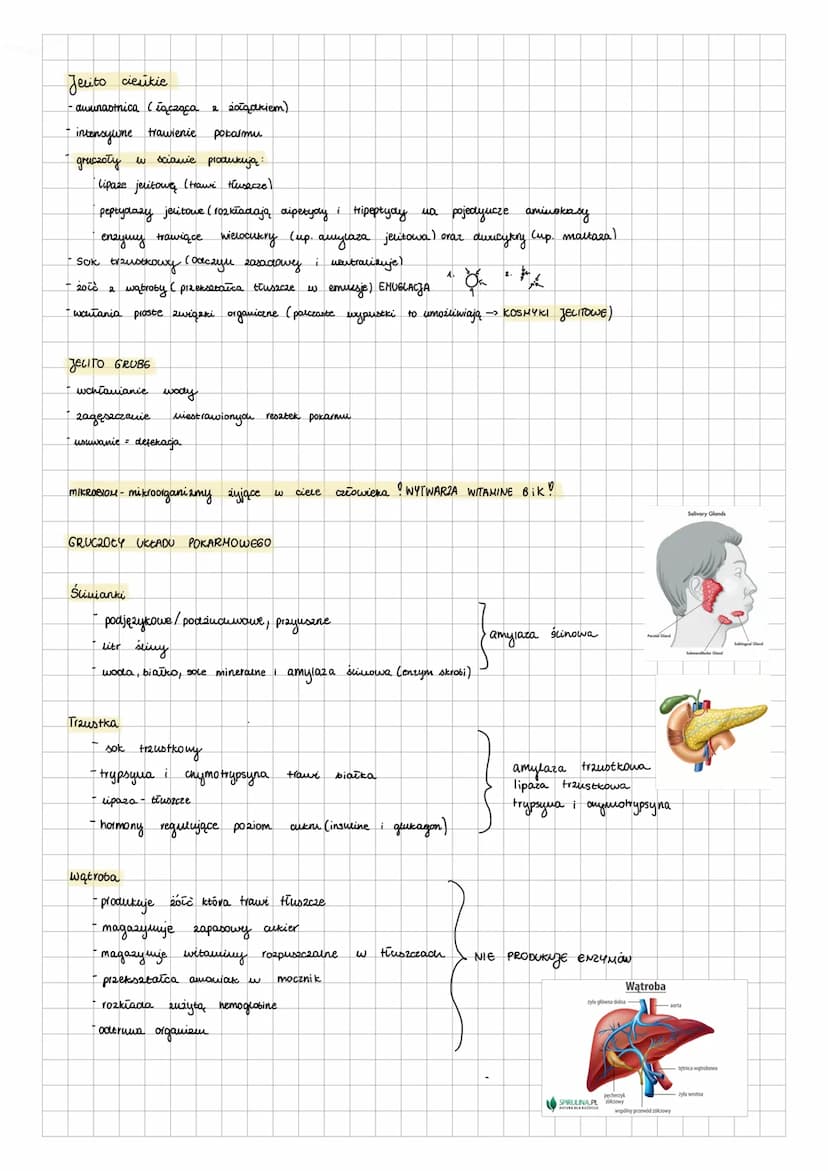 Jelito cienkie
- dwunastnica (łącząca z żołądkiem)
- intensywne trawienie pokarmu
- gruczoły w ścianie produkują:
· lipazę jelitową (trawi tłuszcze)
· peptydazy jelitowe (rozkładają dipeptydy i tripeptydy na pojedyncze aminokasy
· enzymy trawiące wielocukry (np. amylaza jelitowa) oraz dwucukry (np. maltaza)
- sok trzustkowy (odczyn zasadowy i neutralizuje)
- żółć z wątroby (przekształca tłuszcze w emulsję) EMULGACJA 1. 2.
- wchłania proste związki organiczne (palczaste wypustki to umożliwiają → KOSMYKI JELITOWE)
JELITO GRUBE
- wchłanianie wody
- zagęszczanie niestrawionych resztek pokarmu
- usuwanie = defekacja
MIKROBIOM - mikroorganizmy żyjące w ciele człowieka ! WYTWARZA WITAMINE B i K !
GRUCZOŁY UKŁADU POKARMOWEGO
Salivary Glands
Parotid Gland
Sublingual Gland
Submandibular Gland
Ślinianki
- podjęzykowe/podżuchwowe, przyuszne
- litr śliny
- woda, białko, sole mineralne i amylaza ślinowa (enzym skrobi)
amylaza ślinowa
Trzustka
- sok trzustkowy
- trypsyna i chymotrypsyna trawi białka
- lipaza - tłuszcze
- hormony regulujące poziom cukru (insuline i glukagon)
amylaza trzustkowa
lipaza trzustkowa
trypsyna i chymotrypsyna
Wątroba
- produkuje żółć która trawi tłuszcze
- magazynuje zapasowy cukier
- magazynuje witaminy rozpuszczalne w tłuszczach
- przekształca amoniak w mocznik
- rozkłada zużytą hemoglobine
- odtruwa organizm
NIE PRODUKUJE ENZYMÓW
Wątroba
żyła główna dolna
aorta
tętnica wątrobowa
żyła wrotna
pęcherzyk
żółciowy
wspólny przewód żółciowy
SPIRULINA.PL
NATURA DLA KAŻDEGO